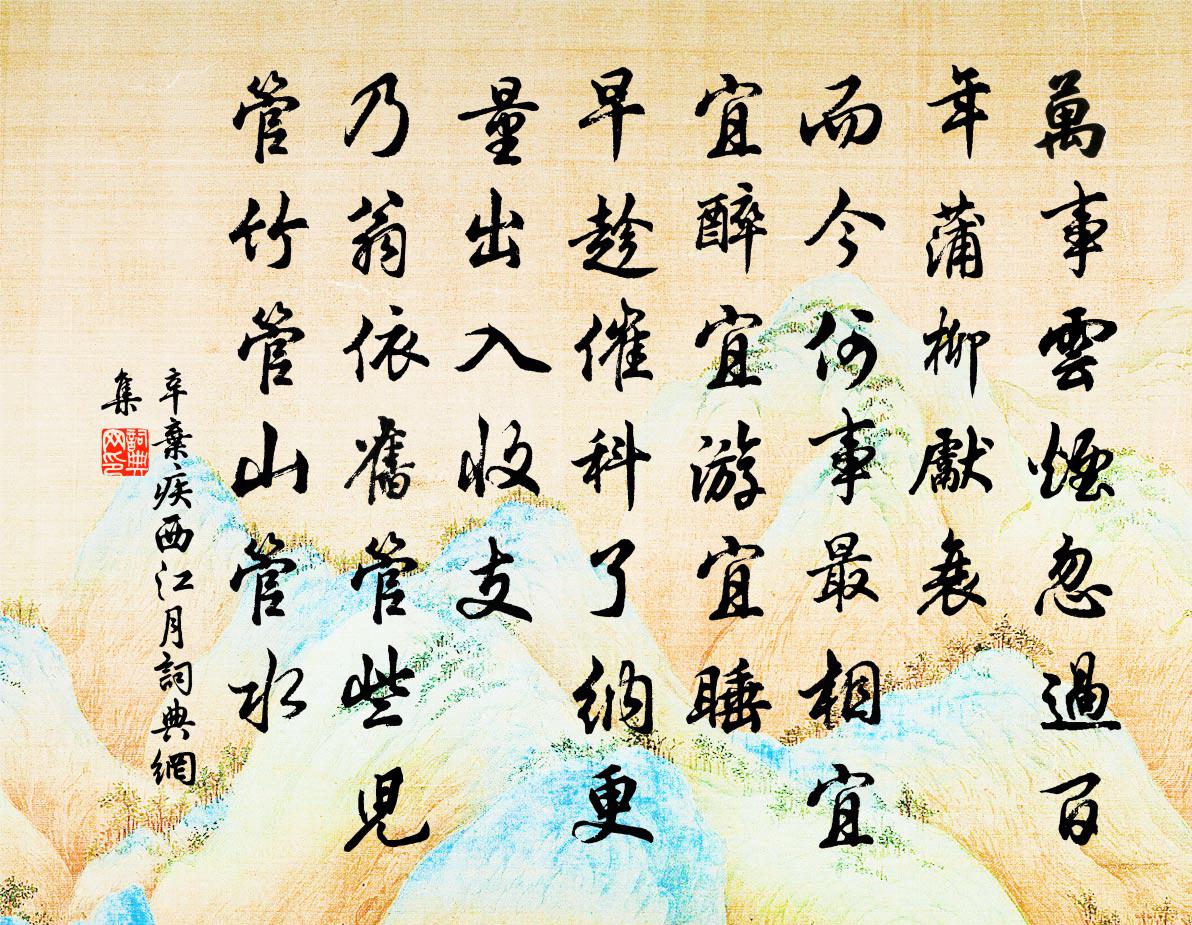 萬事雲煙忽過百
年蒲柳獻衰
而今何事最相宜
宜醉宜游宜睡
早趁催科了納更
量出入收支
乃翁依舊管些兒
管竹管山管水
辛棄疾西江月詞典網
集
詞典
网印